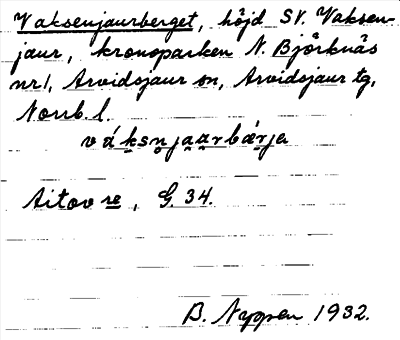 Vaksenjaurberget, höjd SV. Vaksen-
jaur, kronoparken N. Björknäs
nr 1, Arvidsjaur sn, Arvidsjaur tg,
Norrb. l.
váksnjaarbǽrja
Aitovre, G. 34.
B. Nyppen 1932.